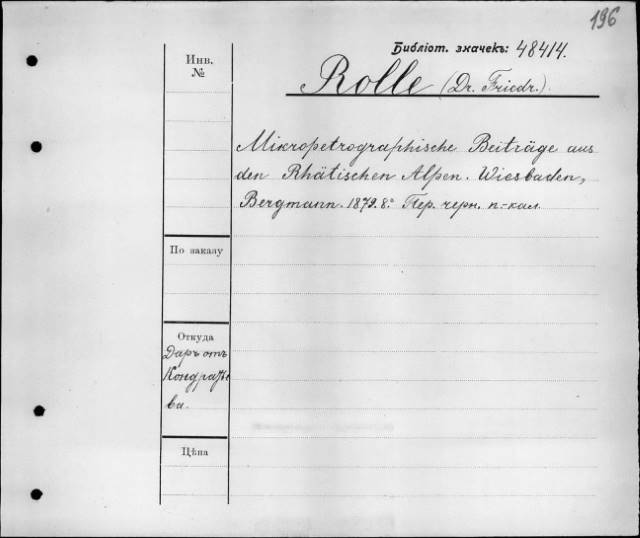 196
Библіот. значекъ: 48414.
Инв.
№
Rolle (Dr. Friedr.)
Mikropetrographische Beiträge aus
den Rhätischen Alpen. Wiesbaden,
Bergmann. 1879. 8.° Пер. черн. п.-кал.
По заказу
Откуда
Даръ отъ
Кондратье
ва.
Цѣна